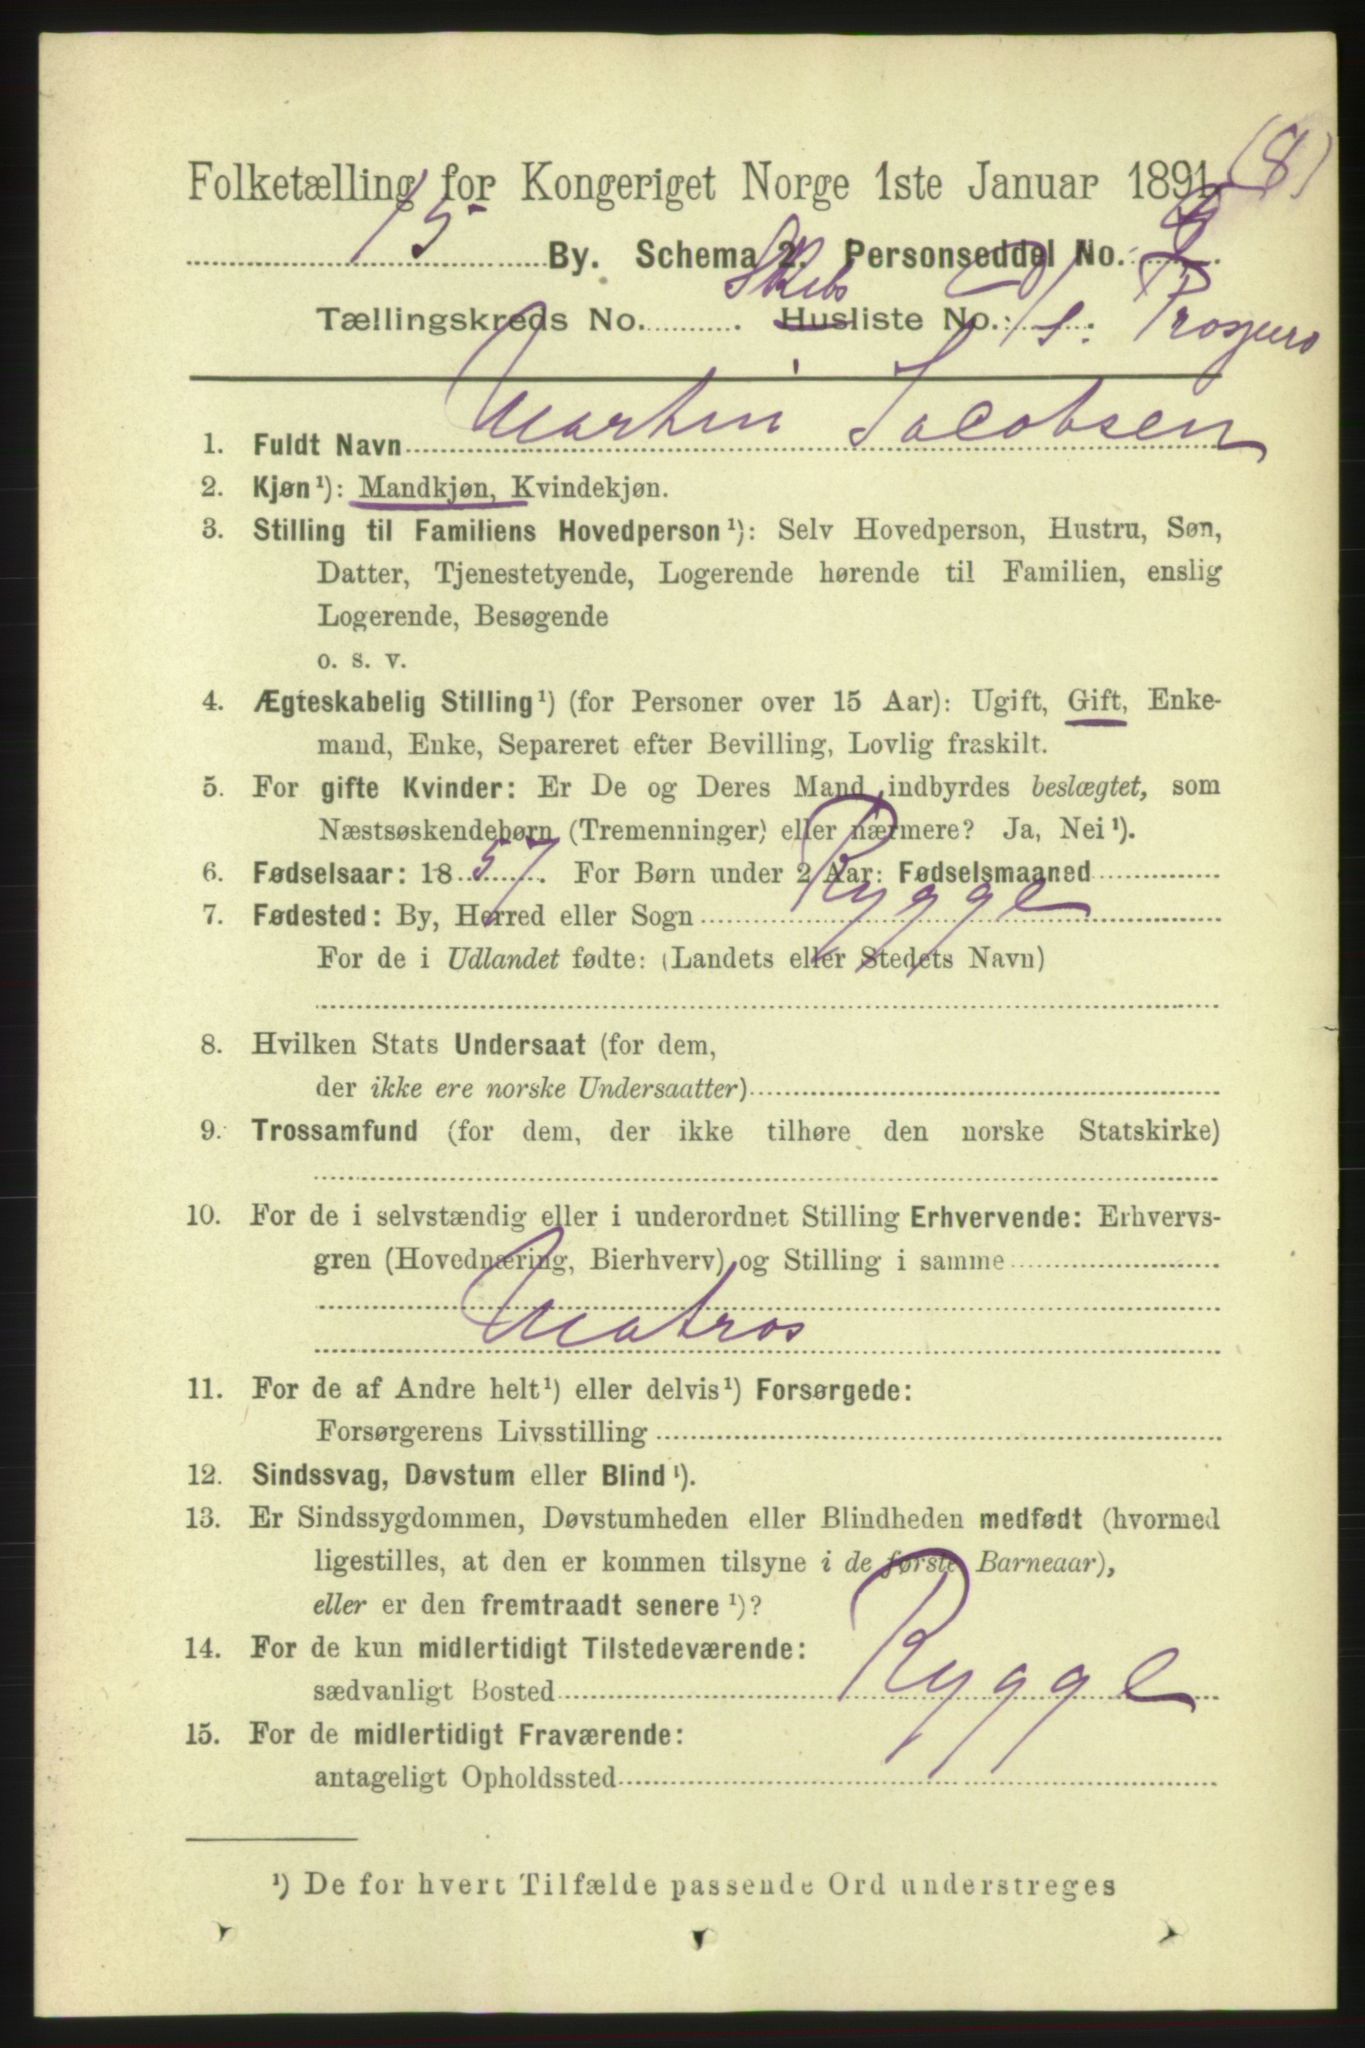 (8)
Folketælling for Kongeriget Norge 1ste Januar 1891.
15 By. Schema 2. Personseddel No.
Skibs
Tællingskreds No. Husliste No. Prospero
1. Fuldt Navn Martin Jacobsen
2. Kjøn¹): Mandkjøn, Kvindekjøn.
3. Stilling til Familiens Hovedperson¹): Selv Hovedperson, Hustru, Søn,
Datter, Tjenestetyende, Logerende hørende til Familien, enslig
Logerende, Besøgende
o. s. v.
4. Ægteskabelig Stilling¹) (for Personer over 15 Aar): Ugift, Gift, Enke-
mand, Enke, Separeret efter Bevilling, Lovlig fraskilt.
5. For gifte Kvinder: Er De og Deres Mand indbyrdes beslægtet, som
Næstsøskendebørn (Tremenninger) eller nærmere? Ja, Nei¹).
6. Fødselsaar: 1857. For Børn under 2 Aar: Fødselsmaaned
7. Fødested: By, Herred eller Sogn Rygge
For de i Udlandet fødte: (Landets eller Stedets Navn)
8. Hvilken Stats Undersaat (for dem,
der ikke ere norske Undersaatter)
9. Trossamfund (for dem, der ikke tilhøre den norske Statskirke)
10. For de i selvstændig eller i underordnet Stilling Erhvervende: Erhvervs-
gren (Hovednæring, Bierhverv) og Stilling i samme
Matros
11. For de af Andre helt¹) eller delvis¹) Forsørgede:
Forsørgerens Livsstilling
12. Sindssvag, Døvstum eller Blind¹).
13. Er Sindssygdommen, Døvstumheden eller Blindheden medfødt (hvormed
ligestilles, at den er kommen tilsyne i de første Barneaar),
eller er den fremtraadt senere¹)?
14. For de kun midlertidigt Tilstedeværende:
sædvanligt Bosted Rygge
15. For de midlertidigt Fraværende:
antageligt Opholdssted
¹) De for hvert Tilfælde passende Ord understreges